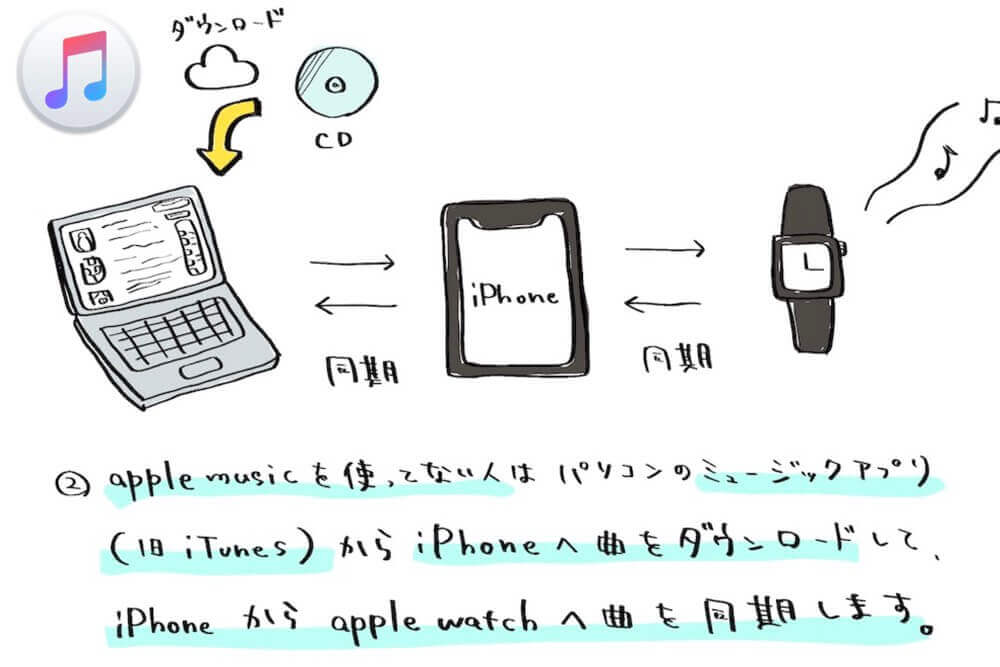 ダウンロード
CD
iPhone
同期
同期
② apple musicを使ってない人はパソコンのミュージックアプリ
(旧 iTunes)からiPhoneへ曲をダウンロードして、
iPhoneからapple watchへ曲を同期します。